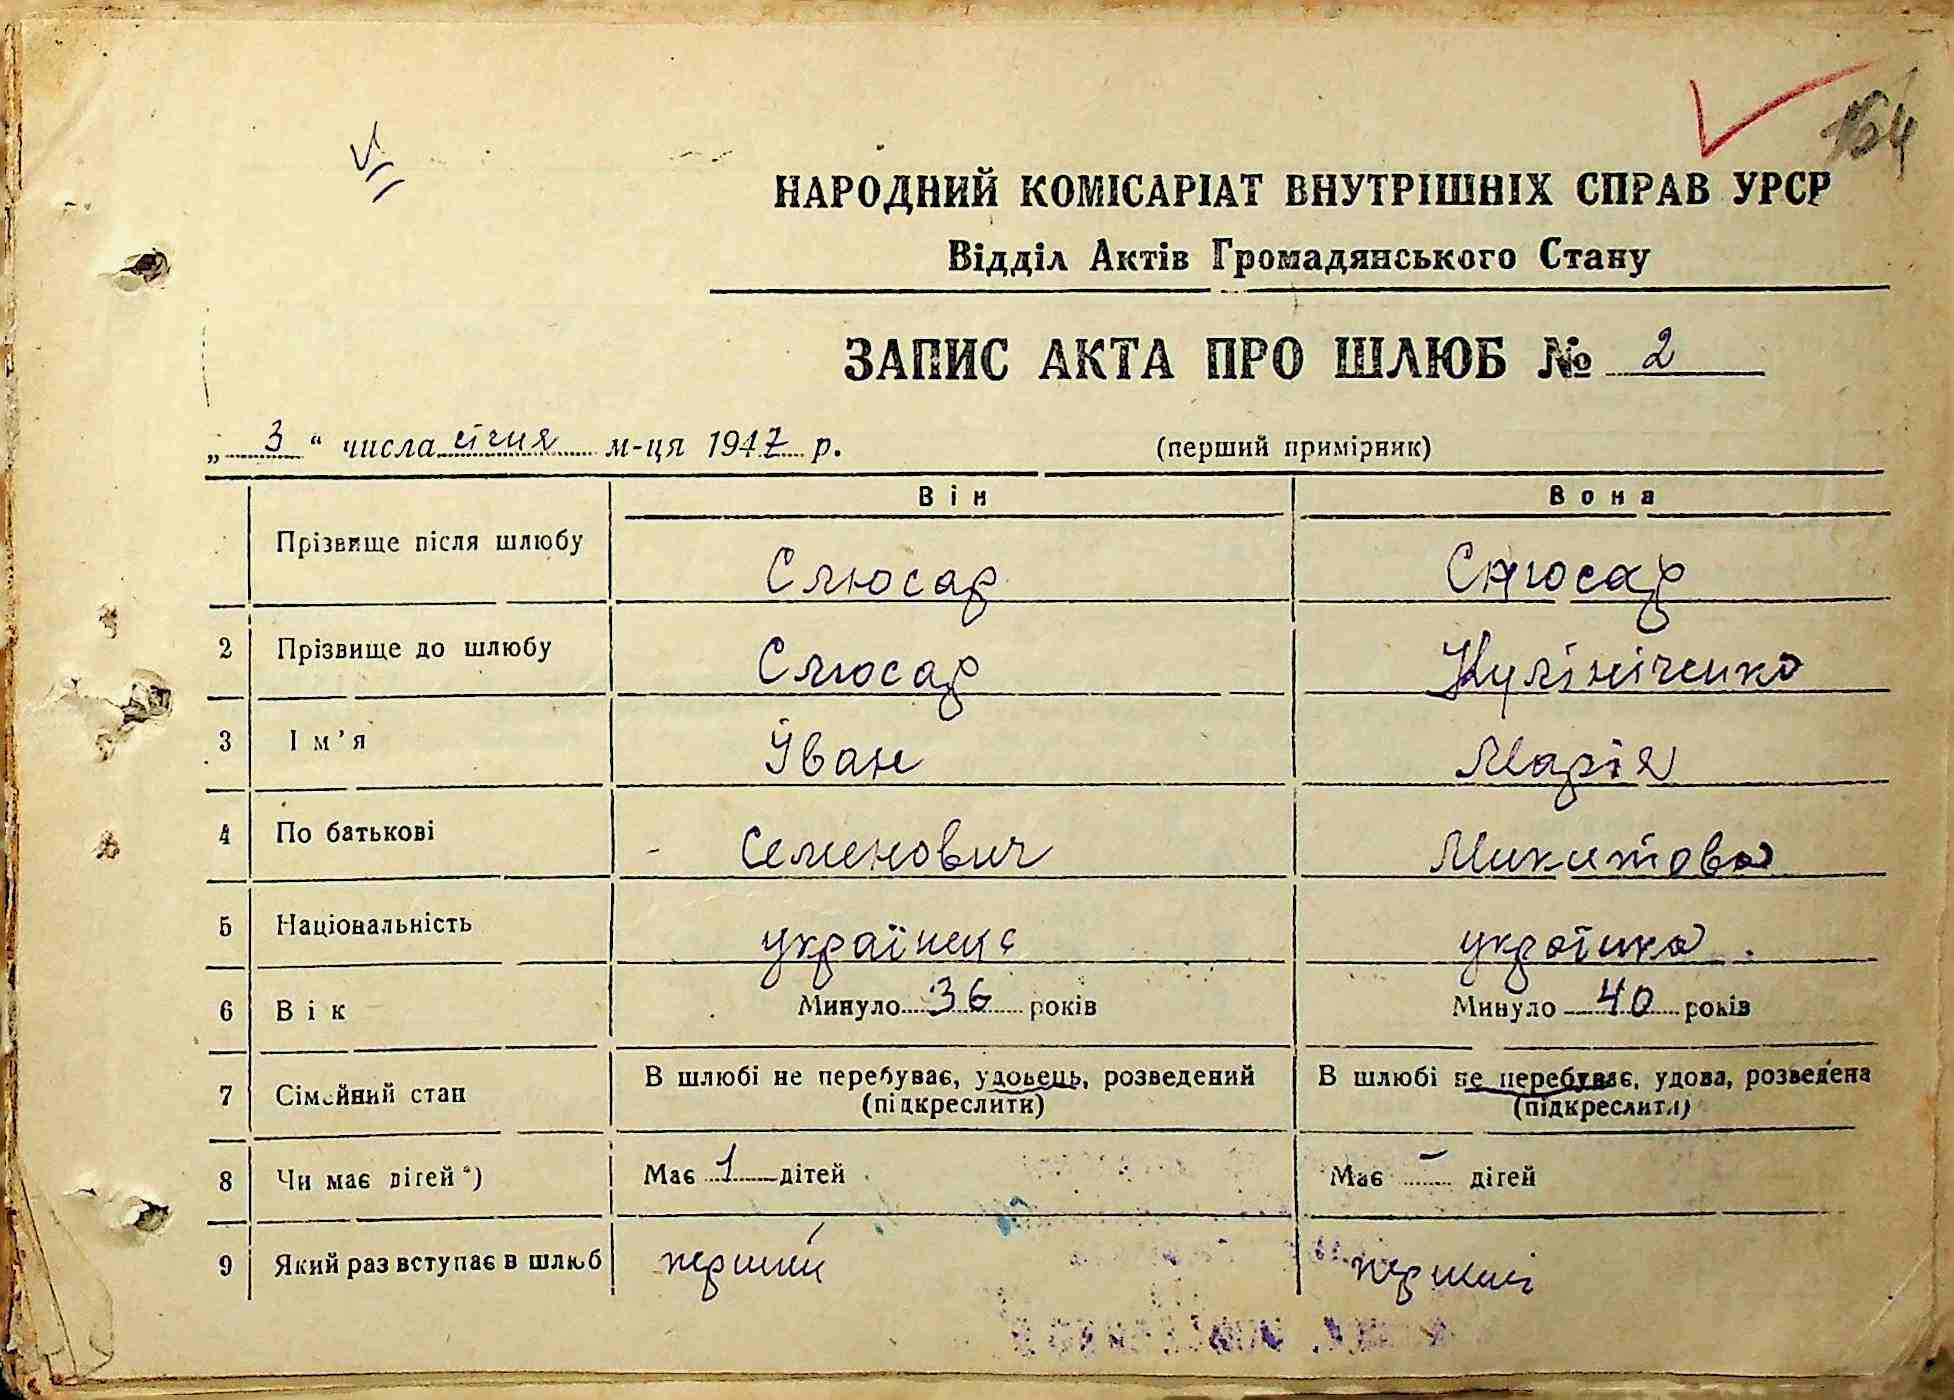 164
НАРОДНИЙ КОМІСАРІАТ ВНУТРІШНІХ СПРАВ УРСР
Відділ Актів Громадянського Стану
ЗАПИС АКТА ПРО ШЛЮБ № 2
„ 3 “ числа січня м-ця 1947 р. (перший примірник)
Він Вона
Прізвище після шлюбу Слюсар Слюсар
2 Прізвище до шлюбу Слюсар Кулініченко
3 Ім'я Іван Марія
4 По батькові Семенович Микитова
5 Національність українець українка
6 Вік Минуло 36 років Минуло 40 років
7 Сімейний стан В шлюбі не перебуває, удовець, розведений В шлюбі не перебуває, удова, розведена
(підкреслити) (підкреслити)
8 Чи має дітей *) Має 1 дітей Має - дітей
9 Який раз вступає в шлюб перший перший